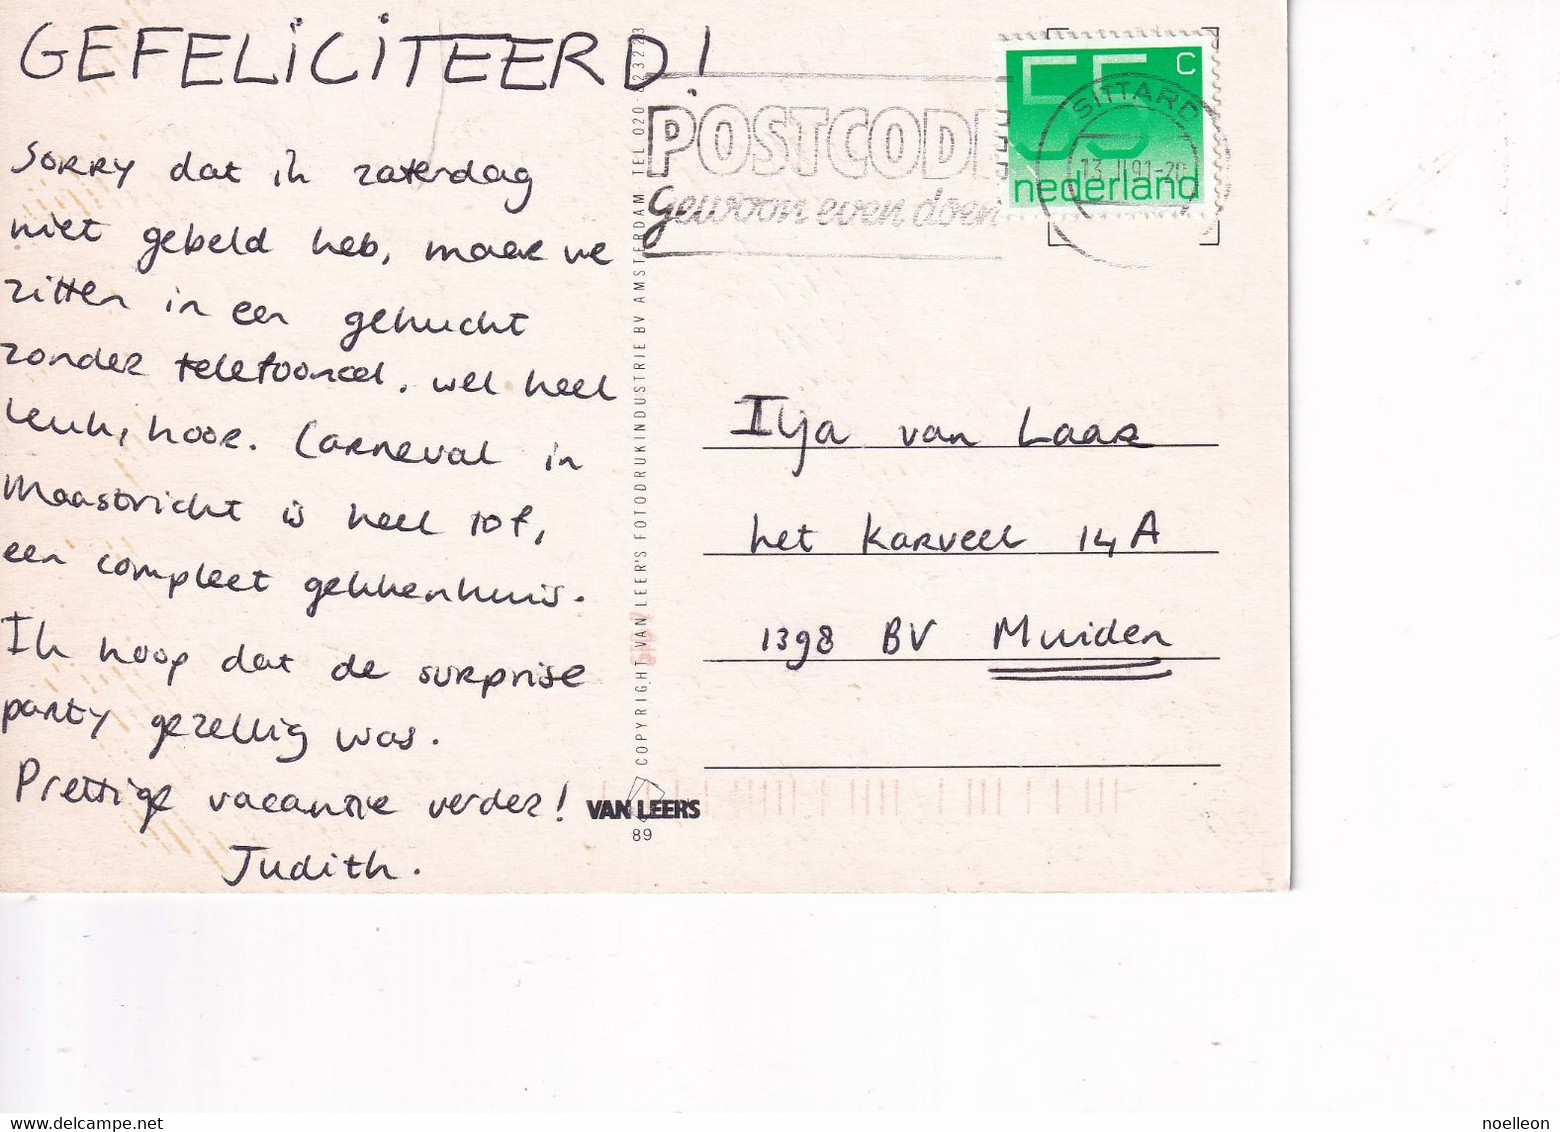 GEFELICITEERD!
Sorry dat ik zaterdag
niet gebeld heb, maar we
zitten in een gehucht
zonder telefooncel. wel heel
leuk, hoor. Carneval in
Maastricht is heel tof,
een compleet gekkenhuis.
Ik hoop dat de surprise
party gezellig was.
Prettige vacantie verder!
Judith.
COPYRIGHT VAN LEER'S FOTODRUKINDUSTRIE BV AMSTERDAM TEL 020-823223
VAN LEERS
89
POSTCODE
gewoon even doen
55 c
nederland
SITTARD
13.II.91-20
Ilja van Laar
het Karveel 14A
1398 BV Muiden
noelleon